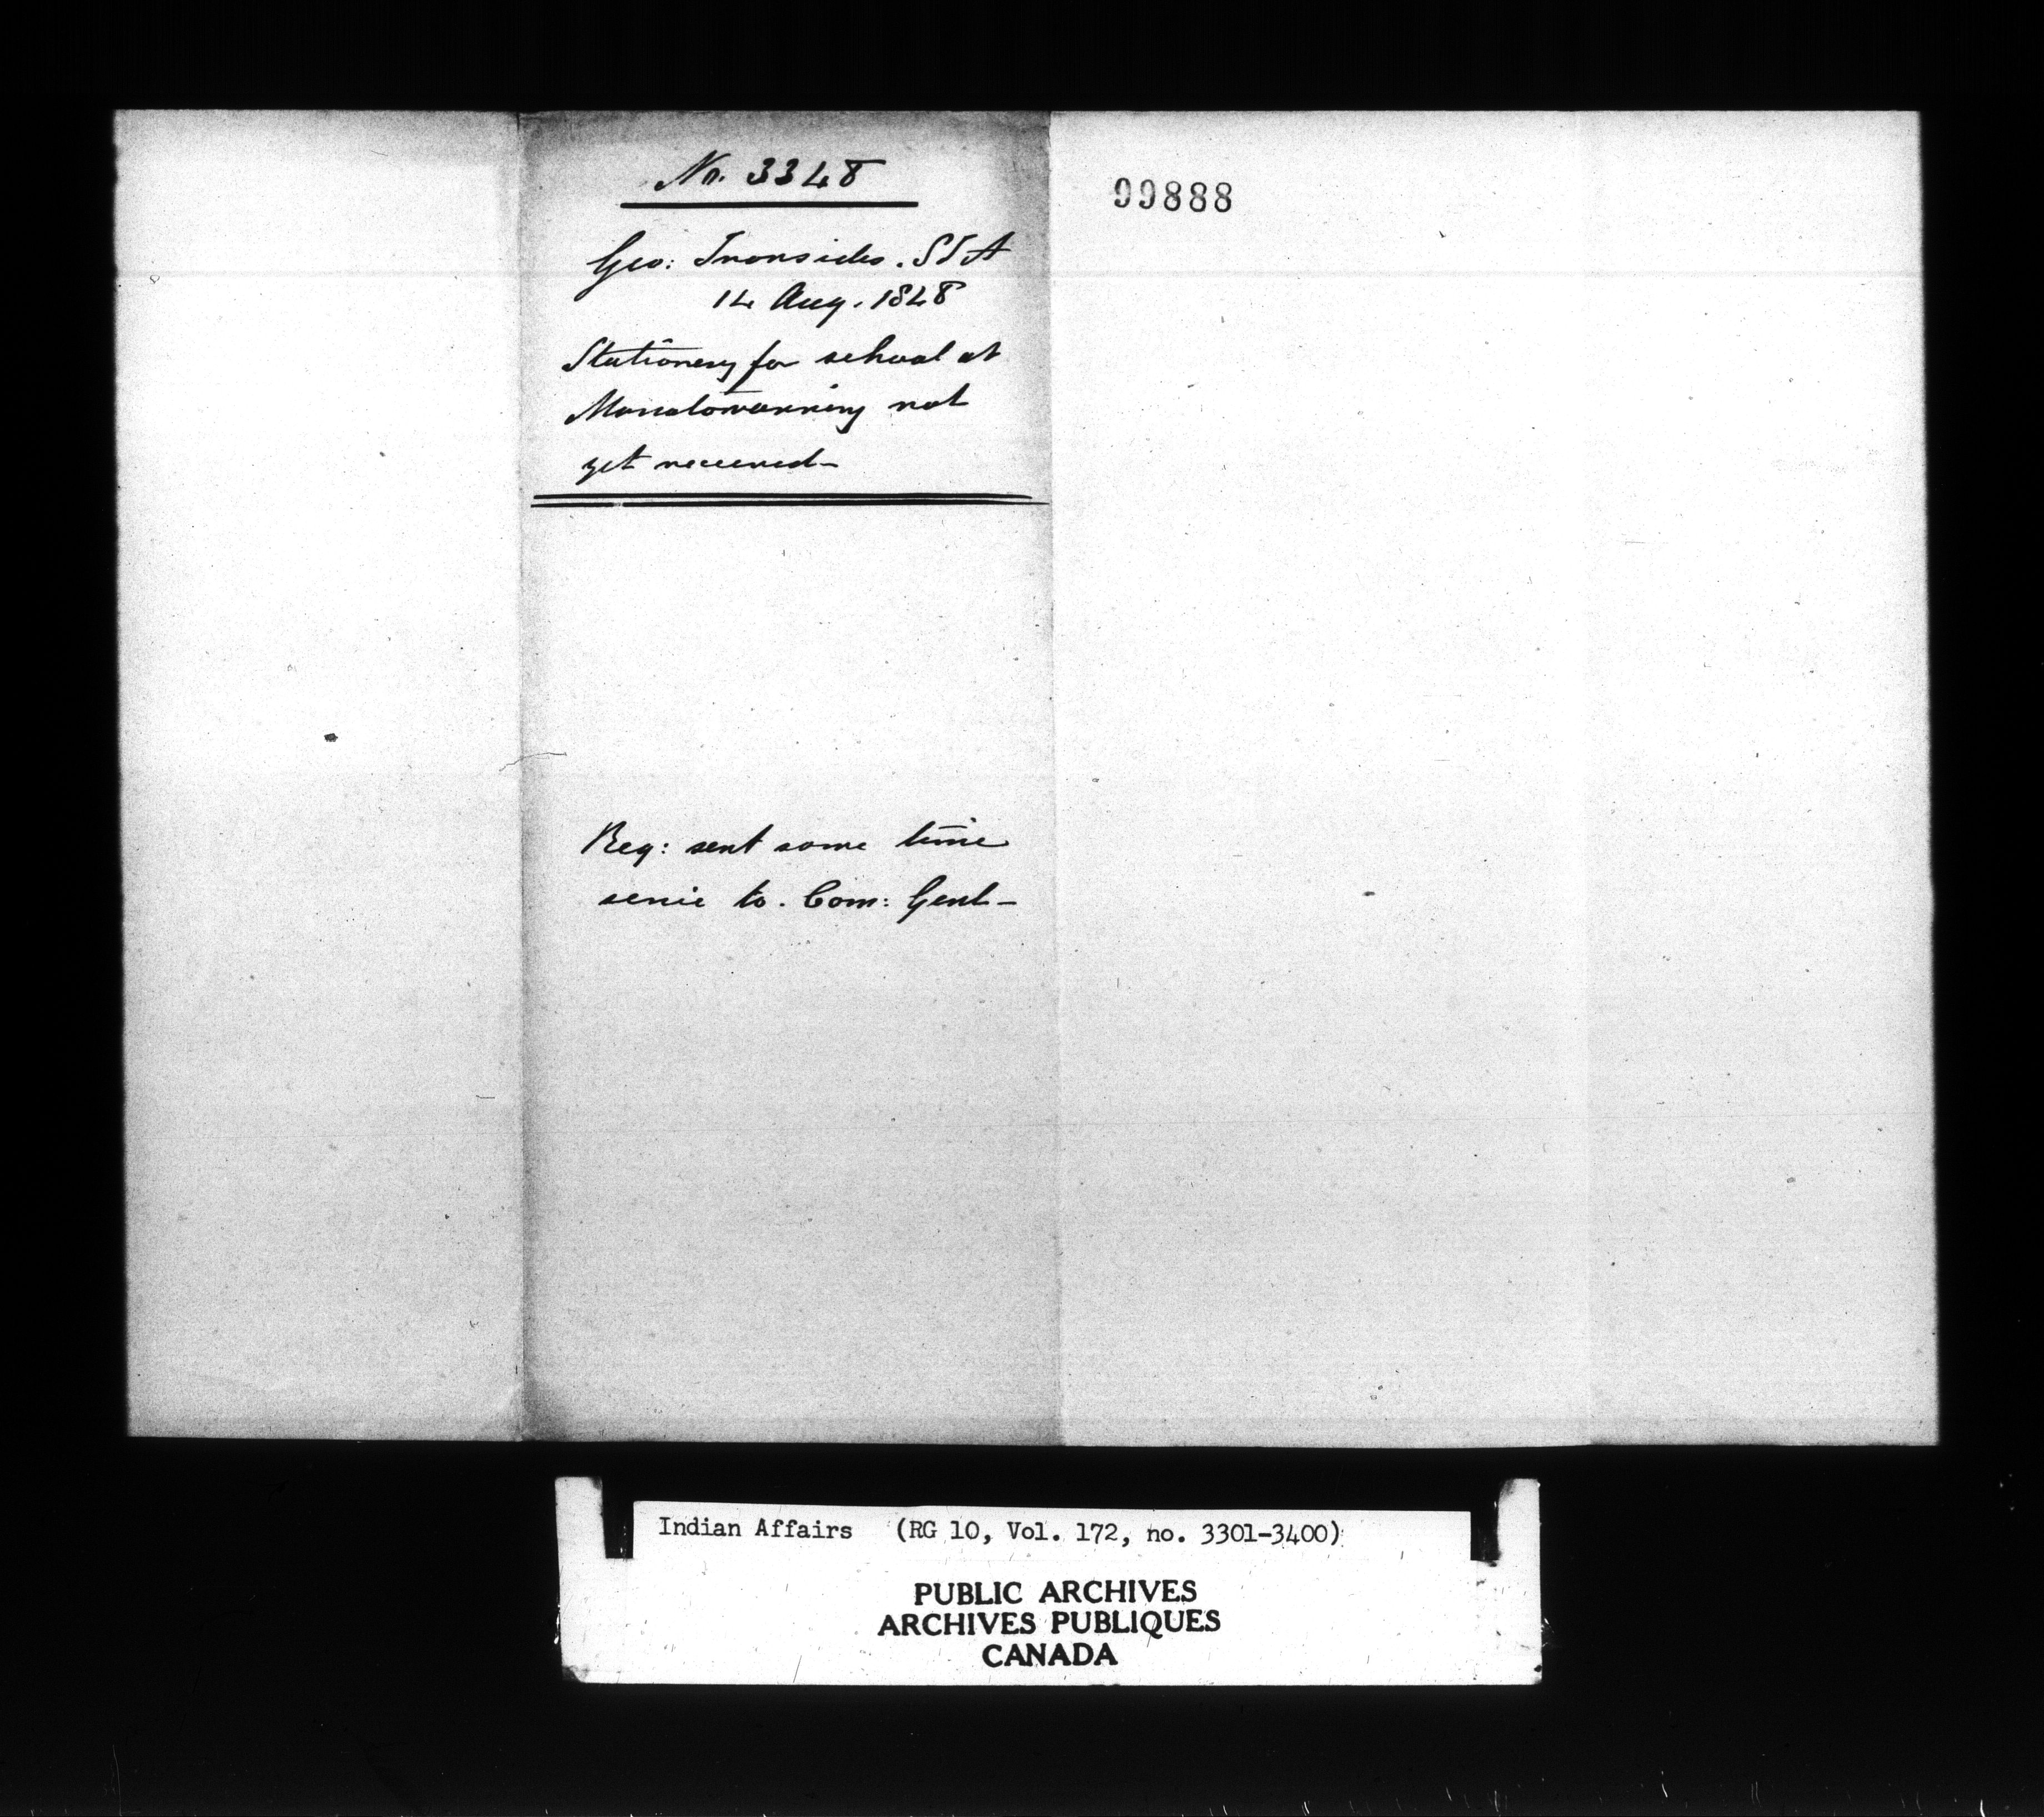 No. 3348
Geo: Ironsides. S I A
14 Aug. 1848
Stationery for school at
Manatowanning not
yet received—
Req: sent some time
sinie to. Com: Genl—
99888
Indian Affairs (RG 10, Vol. 172, no. 3301-3400)
PUBLIC ARCHIVES
ARCHIVES PUBLIQUES
CANADA